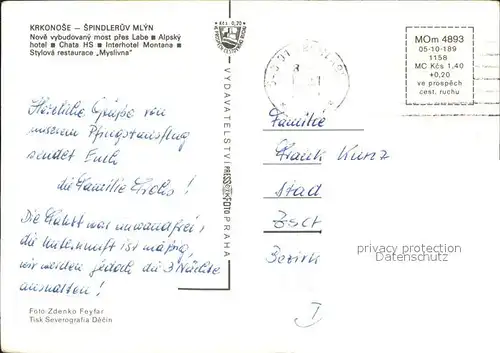 KRKONOŠE — ŠPINDLERŮV MLÝN
Nově vybudovaný most přes Labe ■ Alpský
hotel ■ Chata HS ■ Interhotel Montana ■
Stylová restaurace „Myslivna"
Kčs 0,20
MOm 4893
05-10-189
1158
MC Kčs 1.40
+0,20
ve prospěch
cest. ruchu
VYDAVATELSTVÍ PRESSFOTO PRAHA
Herzliche Grüße von
unserem Pfingstausflug
sendet Euch
die Familie
Die Fahrt war einwandfrei,
die Unterkunft ist mäßig,
wir werden jedoch die 3 Nächte
aushalten!
Familie
Frank Kunz
Stad
Bezirk
I
privacy protection
Datenschutz
Foto Zdenko Feyfar
Tisk Severografia Děčín